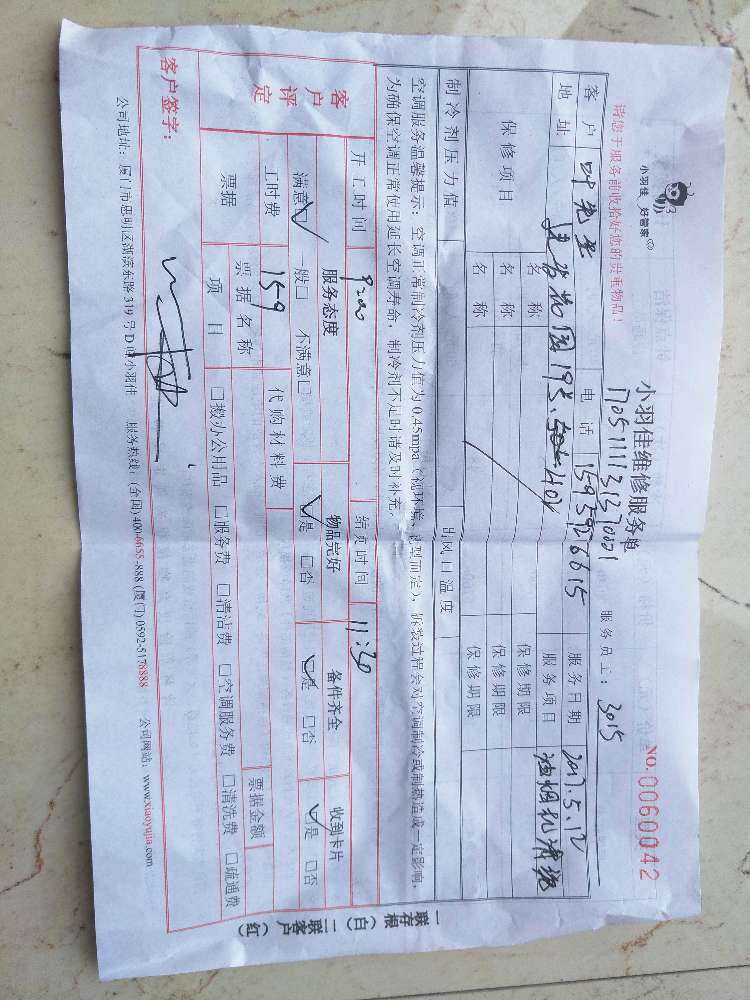 小羽佳 好管家
小羽佳维修服务单
NO.0060042
1705111131370001
服务员工：3015
请您于服务前收拾好您的贵重物品！
客户 电话 1595926615 服务日期 2017.5.12
地址 19# 402 服务项目 油烟机清洗
保修项目 名称 保修期限
名称 保修期限
名称 保修期限
制冷剂压力值 出风口温度
空调服务温馨提示：空调正常制冷剂压力值为0.45mpa（视环境、机型而定），拆装过程会对空调制冷或制热造成一定影响，
为确保空调正常使用延长空调寿命，制冷剂不足时请及时补充。
开工时间 9:00 结束时间 11:30
客户评定 服务态度 物品完好 备件齐全 收到卡片
满意☑ 一般□ 不满意□ ☑是 □否 ☑是 □否 ☑是 □否
工时费 159 代购材料费
票据 票据名称 票据金额
项目 □拨办公用品 □服务费 □清洁费 □空调服务费 □清洗费 □疏通费
客户签字：
公司地址：厦门市思明区湖滨东路319号D 小羽佳 服务热线：(全国)400-6655-888 (厦门)0592-5176888 公司网站：www.xiaoyujia.com
一联存根（白）二联客户（红）